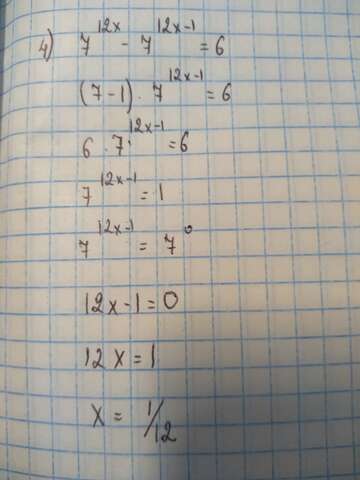 4) 7^{12x} - 7^{12x-1} = 6
(7-1) · 7^{12x-1} = 6
6 · 7^{12x-1} = 6
7^{12x-1} = 1
7^{12x-1} = 7^0
12x-1=0
12x=1
x = 1/12